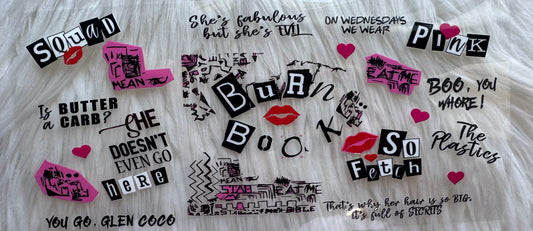 SQUAD
MEAN
Is BUTTER
a CARB?
SHE
DOESN'T
EVEN GO
HERE
YOU GO, GLEN COCO
She's fabulous
but she's EVIL
BuRn
BOOK
MEAN
STAB
EAT ME
BIBLE
ON WEDNESDAYS
WE WEAR
PINK
EAT ME
BOO, YOU
WHORE!
The
Plastics
SO
Fetch
That's why her hair is so BIG,
it's full of SECRETS